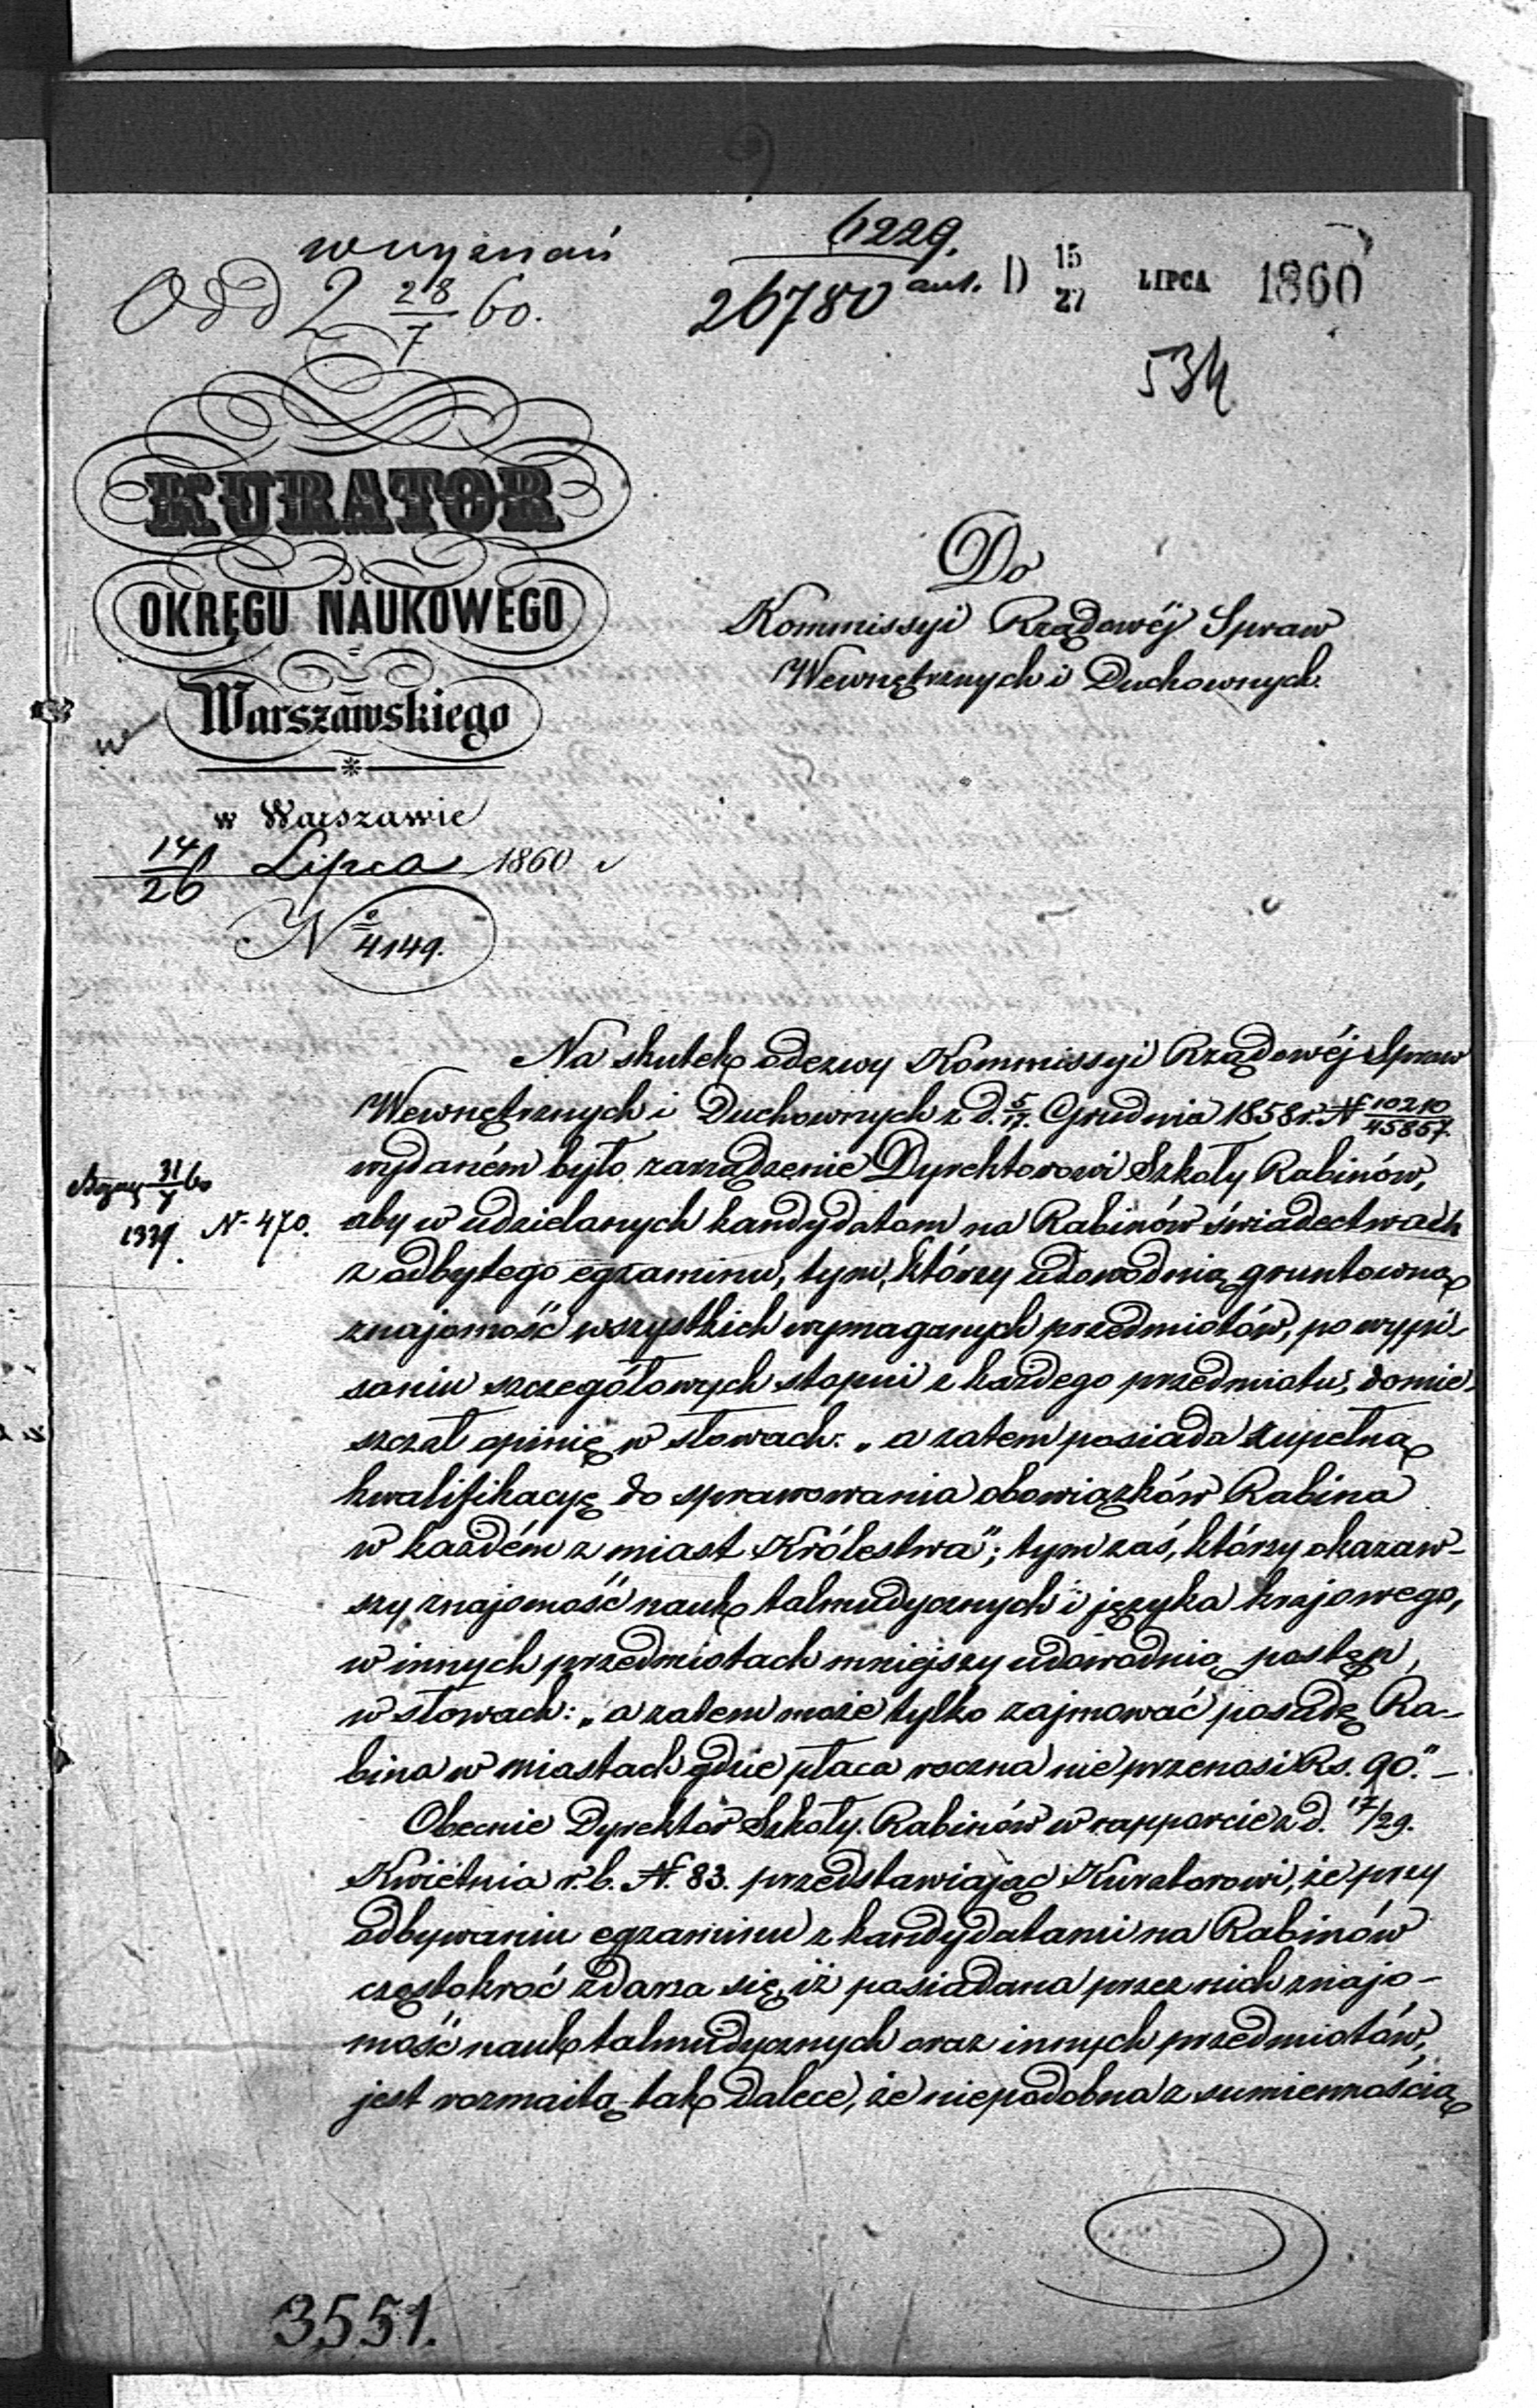 wyznań
Odd 2 28/7 60.
6229.
26780 ant. D 15/27 LIPCA 1860
534
KURATOR
OKRĘGU NAUKOWEGO
Warszawskiego
w Warszawie
14/26 Lipca 1860 r
No 4149.
Do
Kommissyi Rządowéj Spraw
Wewnętrznych i Duchownych.
31/7 60
1339. N. 470.
Na skutek odezwy Kommissyi Rządowéj Spraw
Wewnętrznych i Duchownych z d. 5/17. Grudnia 1858 r. N 10210/45857.
wydaném było zarządzenie Dyrektorowi Szkoły Rabinów,
aby w udzielanych kandydatom na Rabinów świadectwach
z odbytego egzaminu, tym, którzy udowodnią gruntowną
znajomość wszystkich wymaganych przedmiotów, po wypi-
saniu szczegółowych stopni z każdego przedmiotu, domie-
szczał opinię w słowach: „a zatem posiada zupełną
kwalifikacyę do sprawowania obowiązków Rabina
w każdém z miast Królestwa"; tym zaś, którzy okazaw-
szy znajomość nauk talmudycznych i języka krajowego,
w innych przedmiotach mniejszy udowodnią postęp,
w słowach: „a zatem może tylko zajmować posadę Ra-
bina w miastach gdzie płaca roczna nie przenosi Rs. 90." –
Obecnie Dyrektor Szkoły Rabinów w rapporcie z d. 17/29.
Kwietnia r. b. N. 83. przedstawiając Kuratorowi, że przy
odbywaniu egzaminu z kandydatami na Rabinów
częstokroć zdarza się, iż posiadana przez nich znajo-
mość nauk talmudycznych oraz innych przedmiotów,
jest rozmaitą tak dalece, że niepodobna z sumiennością
3551.